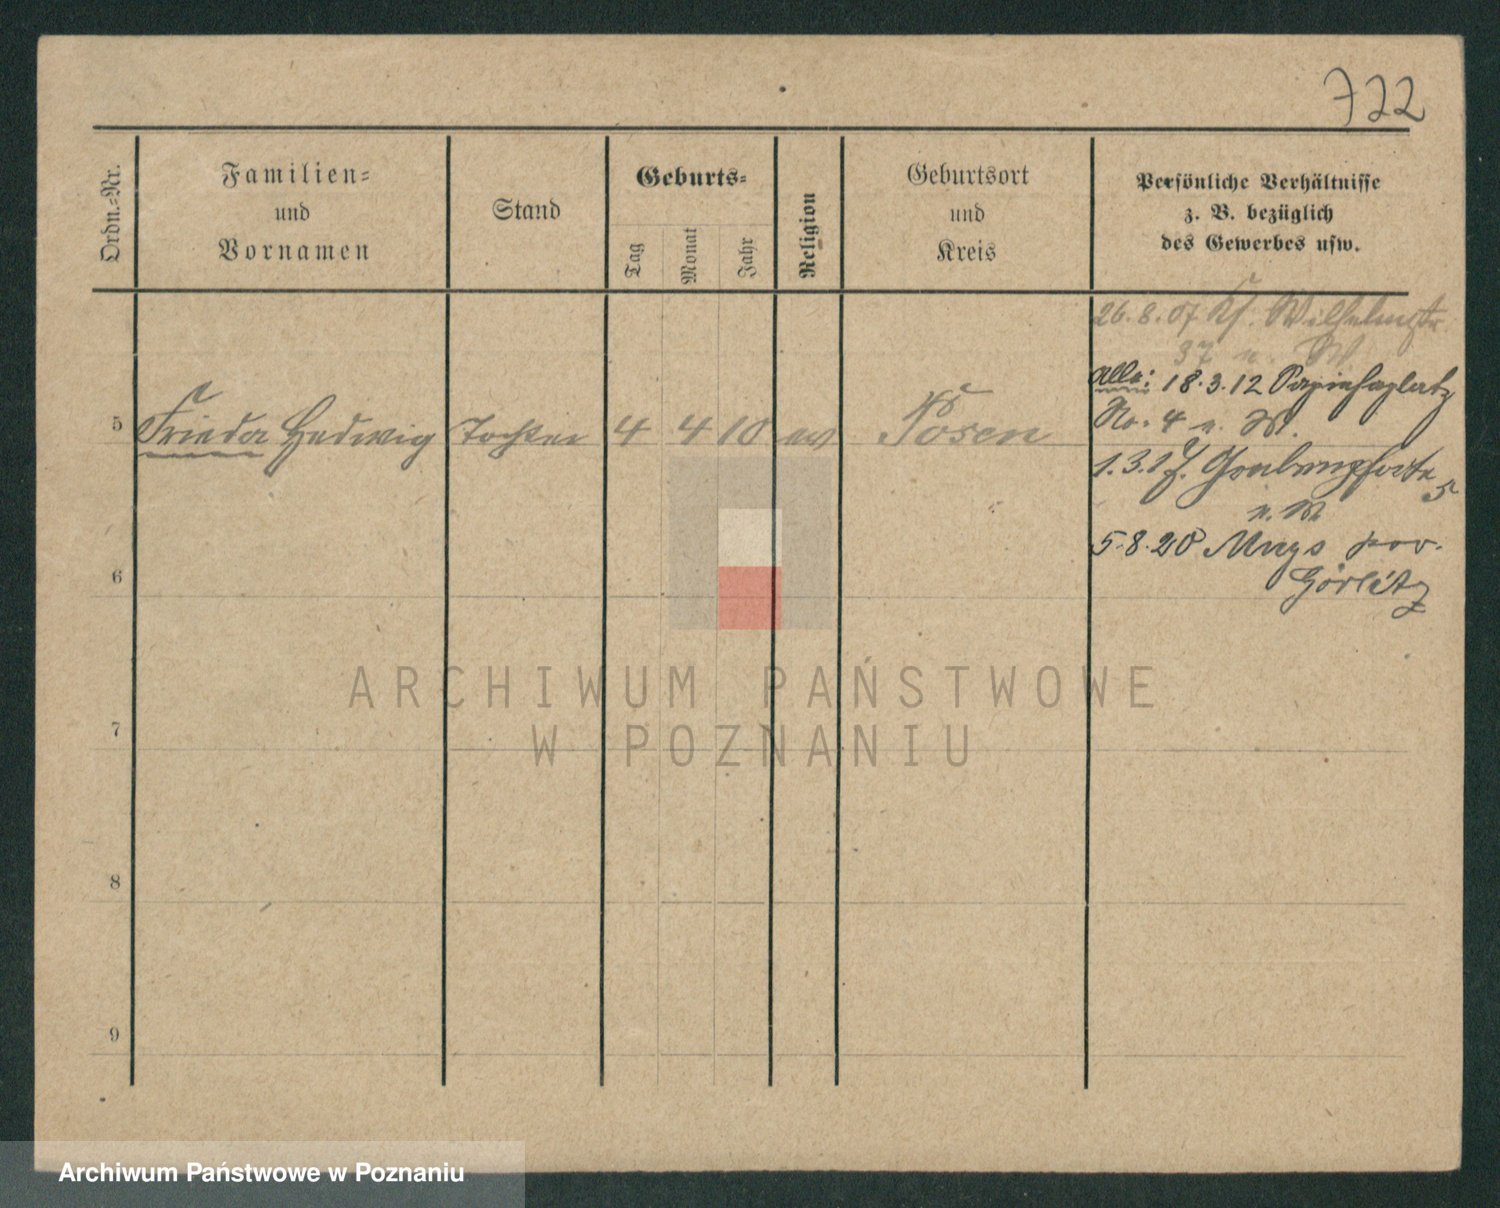 722
Ordn.-Nr.
Familien-
und
Vornamen
Stand
Geburts-
Tag
Monat
Jahr
Religion
Geburtsort
und
Kreis
Persönliche Verhältnisse
z. B. bezüglich
des Gewerbes usw.
26.8.07 Wilhelmstr
37 n. W
5 Frieda Hedwig Tochter 4 4 10 ev Posen
Alle: 18.3.12 Sapiehaplatz
No. 4 n. W.
1.3.17. Grabenpforte 5
n. W
5.8.20 Moys
Görlitz
6
7
8
9
ARCHIWUM PAŃSTWOWE
W POZNANIU
Archiwum Państwowe w Poznaniu